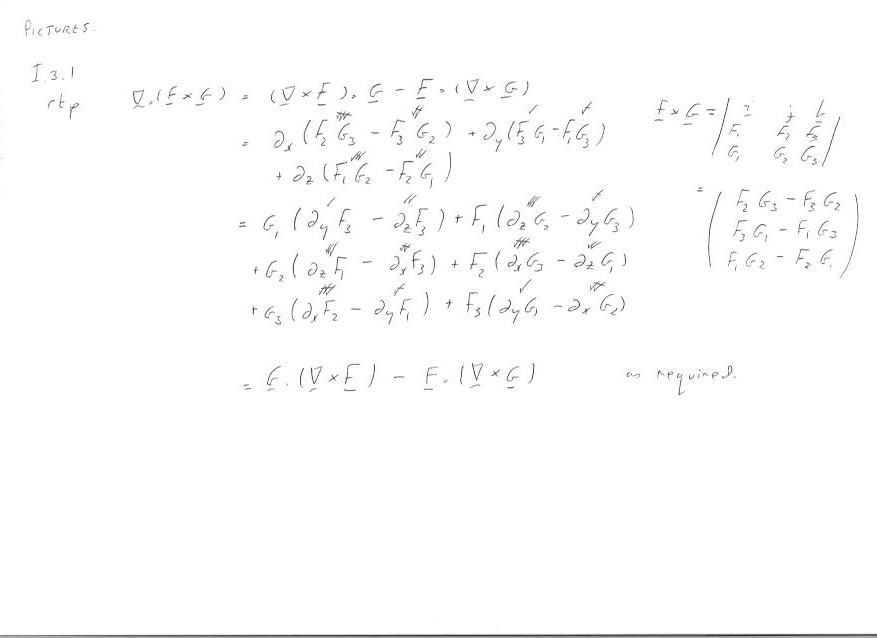 PICTURES.
I.3.1
rtp ∇.(F×G) = (∇×F).G − F.(∇×G)
= ∂x(F₂G₃ − F₃G₂) + ∂y(F₃G₁ − F₁G₃)
+ ∂z(F₁G₂ − F₂G₁)
= G₁(∂yF₃ − ∂zF₃) + F₁(∂zG₂ − ∂yG₃)
+ G₂(∂zF₁ − ∂xF₃) + F₂(∂xG₃ − ∂zG₁)
+ G₃(∂xF₂ − ∂yF₁) + F₃(∂yG₁ − ∂xG₂)
= G.(∇×F) − F.(∇×G) as required.
F×G = | i j k
F₁ F₂ F₃
G₁ G₂ G₃ |
= ( F₂G₃ − F₃G₂
F₃G₁ − F₁G₃
F₁G₂ − F₂G₁ )